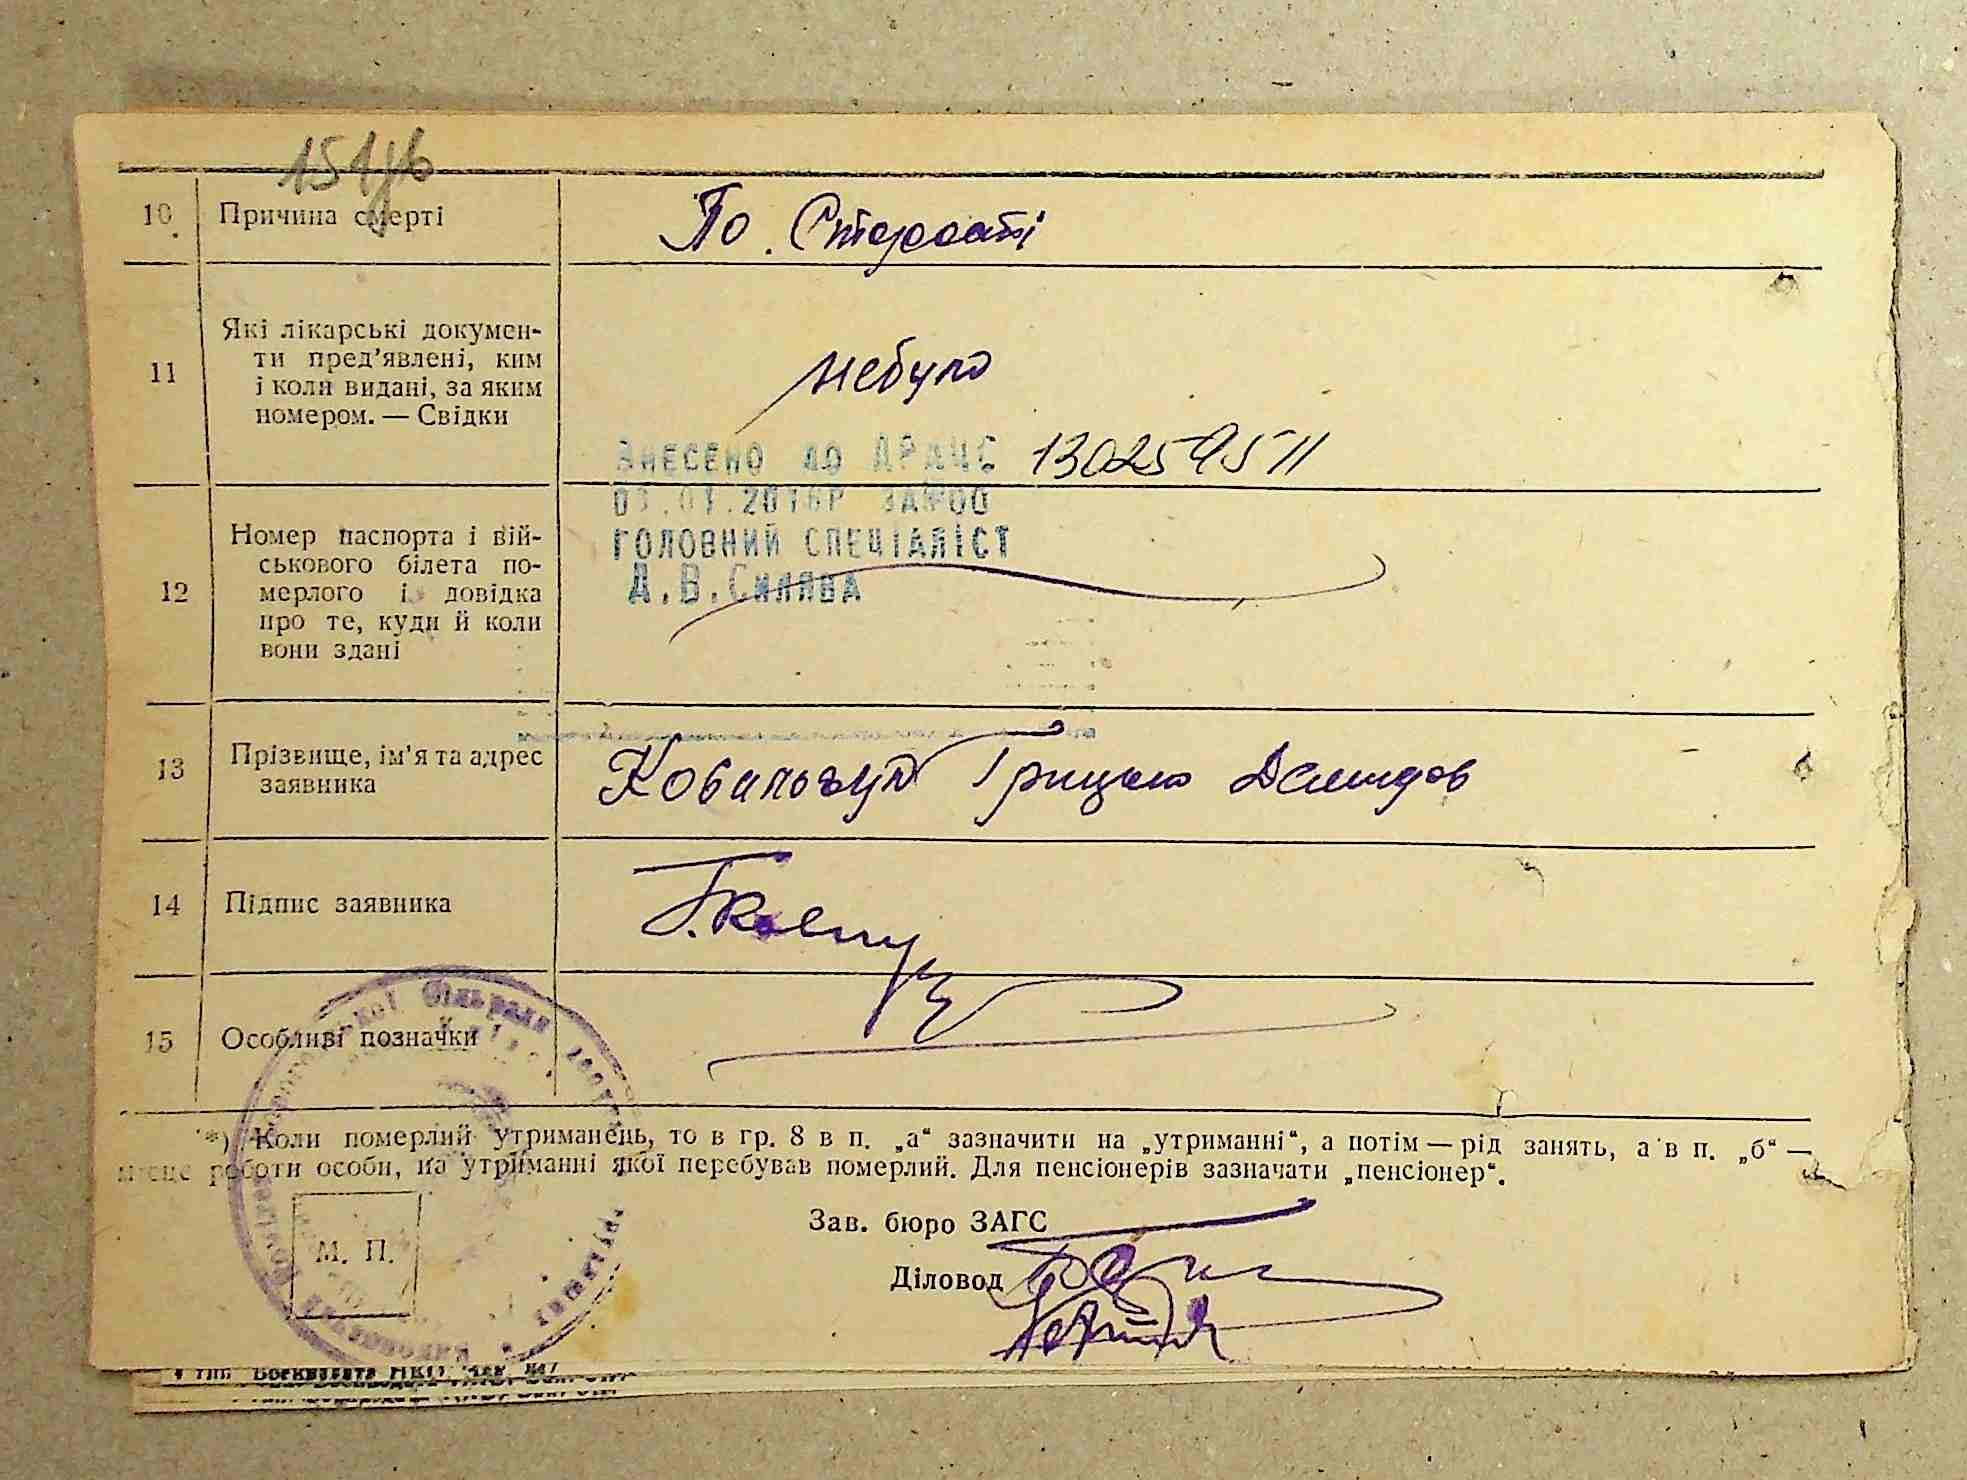 10 Причина смерті По Старості
11 Які лікарські докумен-
ти пред'явлені, ким
і коли видані, за яким
номером. — Свідки
небуло
ВНЕСЕНО ДО ДРАЦС 1302595 11
ГОЛОВНИЙ СПЕЦІАЛІСТ
12 Номер паспорта і вій-
ськового білета по-
мерлого і довідка
про те, куди й коли
вони здані
13 Прізвище, ім'я та адрес
заявника
Ковальчук Грицько Демидов
14 Підпис заявника
15 Особливі позначки
*) Коли померлий утриманець, то в гр. 8 в п. „а“ зазначити на „утриманні“, а потім — рід занять, а в п. „б“ —
місце роботи особи, на утриманні якої перебував померлий. Для пенсіонерів зазначати „пенсіонер“.
Зав. бюро ЗАГС
М. П.
Діловод